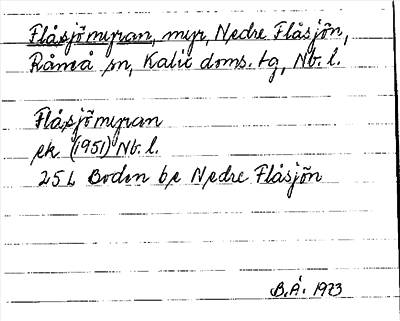 Flåsjömyran, myr, Nedre Flåsjön,
Råneå sn, Kalix doms. tg, Nb. l.
Flåsjömyran
ek (1951) Nb. l.
25L Boden be Nedre Flåsjön
B.Å. 1973